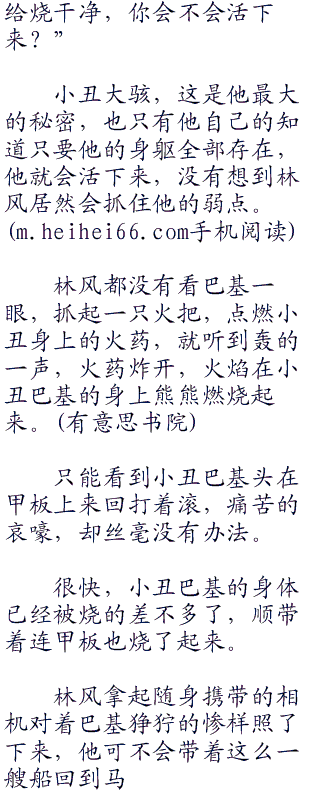 给烧干净，你会不会活下
来？”
小丑大骇，这是他最大
的秘密，也只有他自己的知
道只要他的身躯全部存在，
他就会活下来，没有想到林
风居然会抓住他的弱点。
(m.heihei66.com手机阅读)
林风都没有看巴基一
眼，抓起一只火把，点燃小
丑身上的火药，就听到轰的
一声，火药炸开，火焰在小
丑巴基的身上熊熊燃烧起
来。(有意思书院)
只能看到小丑巴基头在
甲板上来回打着滚，痛苦的
哀嚎，却丝毫没有办法。
很快，小丑巴基的身体
已经被烧的差不多了，顺带
着连甲板也烧了起来。
林风拿起随身携带的相
机对着巴基狰狞的惨样照了
下来，他可不会带着这么一
艘船回到马